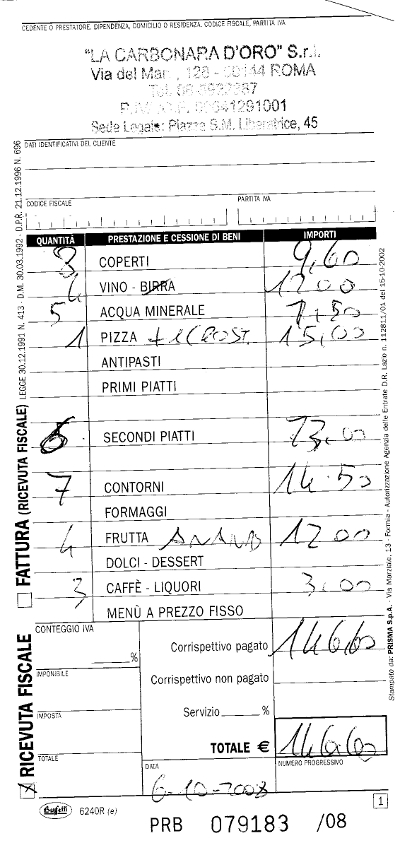 CEDENTE O PRESTATORE, DIPENDENZA, DOMICILIO O RESIDENZA, CODICE FISCALE, PARTITA IVA
"LA CARBONARA D'ORO" S.r.l.
Via del Mare, 128 - 00144 ROMA
Tel. 06
00641291001
Sede Legale: Piazza S.M. Liberatrice, 45
DATI IDENTIFICATIVI DEL CLIENTE
CODICE FISCALE PARTITA IVA
QUANTITÀ PRESTAZIONE E CESSIONE DI BENI IMPORTI
COPERTI 9,60
4 VINO - BIRRA 12 00
5 ACQUA MINERALE 7,50
1 PIZZA + 15,00
ANTIPASTI
PRIMI PIATTI
SECONDI PIATTI 73,00
7 CONTORNI 14.50
FORMAGGI
4 FRUTTA 12 00
DOLCI - DESSERT
3 CAFFÈ - LIQUORI 3,00
MENÙ A PREZZO FISSO
CONTEGGIO IVA
%
IMPONIBILE
IMPOSTA
TOTALE
Corrispettivo pagato 146,60
Corrispettivo non pagato
Servizio %
TOTALE € 146,60
DATA 6-10-2008
NUMERO PROGRESSIVO
X RICEVUTA FISCALE
FATTURA (RICEVUTA FISCALE) LEGGE 30.12.1991 N. 413 - D.M. 30.03.1992 - D.P.R. 21.12.1996 N. 696
Stampato da: PRISMA S.p.A. - Via Marziale, 13 - Formia - Autorizzazione Agenzia delle Entrate D.R. Lazio n. 112811/01 del 15-10-2002
Buffetti 6240R (e)
1
PRB 079183 /08